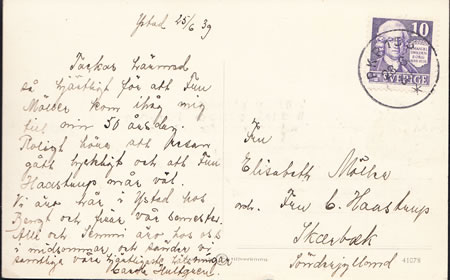 Ystad 25/6 39
Tackar härmed
så hjärtligt för att Fru
Mölder kom ihåg mig
till min 50 årsdag.
Roligt höra att resan
gått lyckligt och att Fru
Haastrup mår väl.
Vi äro här i Ystad hos
Bengt och firar vår semester.
Alle och Jemmi äro hos oss
i midsommar och sänder vi
samtliga våra hjärtligaste hälsningar
Hultgren
10
SVERIGE
Fru
Elisabeth Mölder
adr. Fru C. Haastrup
Skærbæk
Sönderjylland